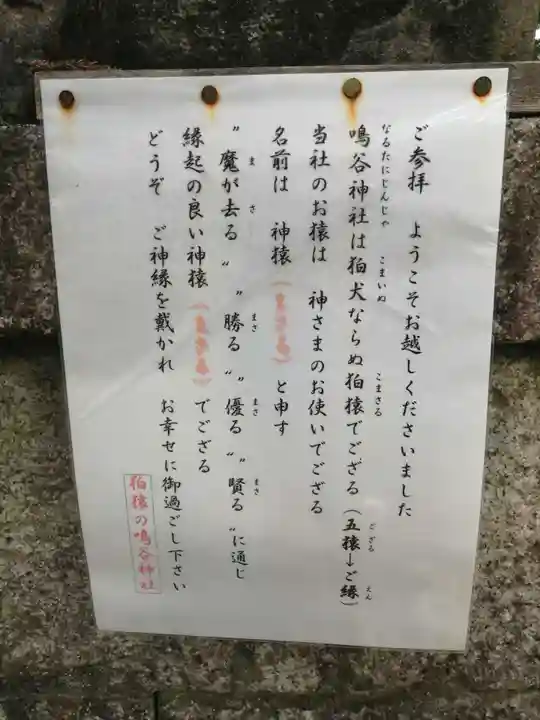 ご参拝 ようこそお越しくださいました
鳴谷神社は狛犬ならぬ狛猿でござる(五猿→ご縁)
なるたにじんじゃ
こまいぬ
こまさる
ござる
えん
当社のお猿は 神さまのお使いでござる
名前は 神猿( )と申す
"魔が去る" "勝る" "優る" "賢る"に通じ
ま
さ
まさ
まさ
まさ
縁起の良い神猿( )でござる
どうぞ ご神縁を戴かれ お幸せに御過ごし下さい
狛猿の鳴谷神社